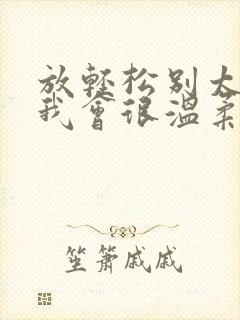 放轻松别太
我会很温柔
笙箫戚戚